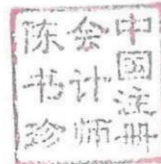 中国注册
会计师
陈书珍